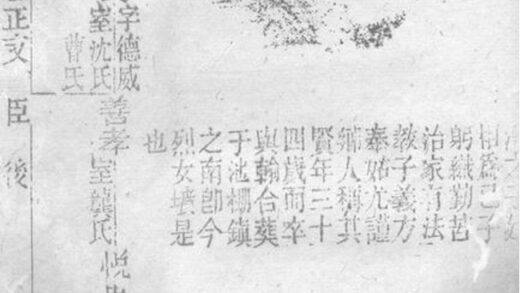 為己子
躬織勤苦
治家有法
教子義方
奉姑尤謹
鄉人稱其
賢年三十
四歲而卒
與翰合葬
于池柵鎮
之南即今
烈女壙是
也
字德威
室沈氏
曹氏
善孝 室龔氏 悅
正文 臣 後